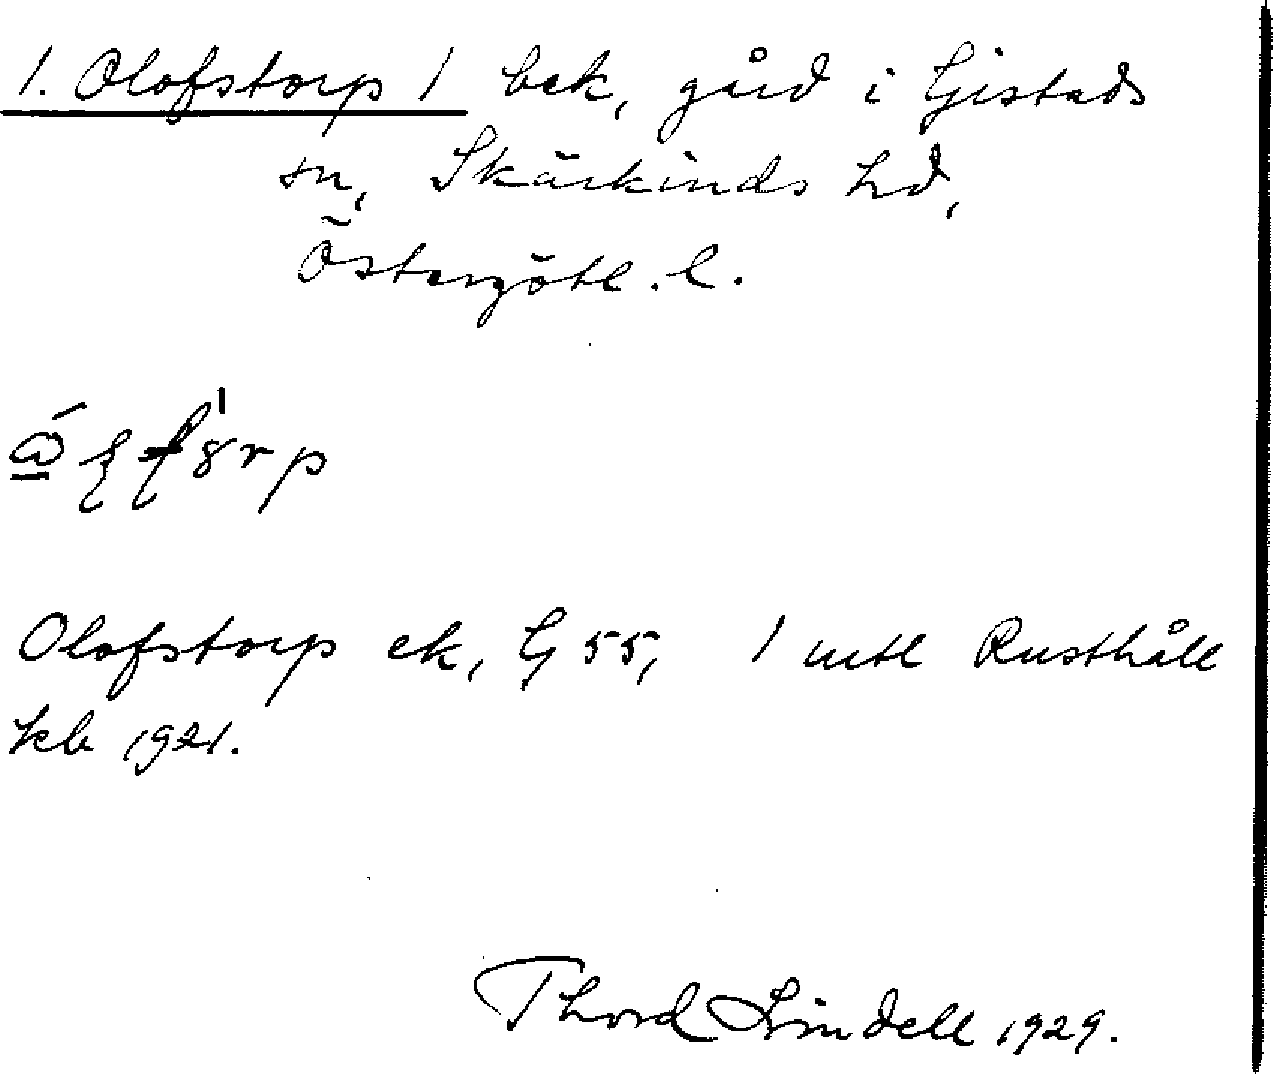 1. Olofstorp 1 bek, gård i Gistads
sn, Skärkinds hd,
Östergötl. l.
Olofstorp ek, G 55, 1 mtl Rusthåll
kb 1921.
Thord Lindell 1929.